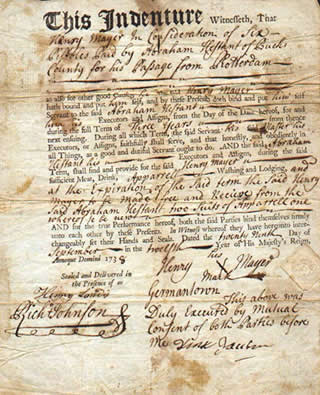 This Indenture Witnesseth, That
Henry Mayer in Consideration of Six
Pistoles Paid by Abraham Hestant of Bucks
County for his Passage from Rotterdam
as also for other good Causes, he the said Henry Mayer
hath bound and put himself, and by these Presents doth bind and put himself
Servant to the said Abraham Hestant
Executors and Assigns, from the Day of the Date hereof, for and
during the full Term of Three Years
next ensuing. During all which Term, the said Servant his
Executors, or Assigns, faithfully shall serve, and that honestly, and obediently in
all Things, as a good and dutiful Servant ought to do. AND the said Abraham
Hestant his Executors and Assigns, during the
Term, shall find and provide for the said Henry Mayer
sufficient Meat, Drink, Apparel, Washing and Lodging, and
at the Expiration of the said term the said Henry
Mayer to be made free and Receive from the
Said Abraham Hestant two Suits of Apparrell one
whereof to be new
AND for the true Performance hereof, both the said Parties bind themselves firmly
unto each other by these Presents. In Witness whereof they have interchangeably set their Hands and Seals. Dated the Twenty Ninth Day of
September in the twelfth Year of His Majesty's Reign,
Annoque Domini 1738
his
Sealed and Delivered in
the Presence of us
Henry Mayer
Mark
Germantown
Rich Johnson
This above was
Duly Executed by Mutual
Consent of both the Parties before
Me